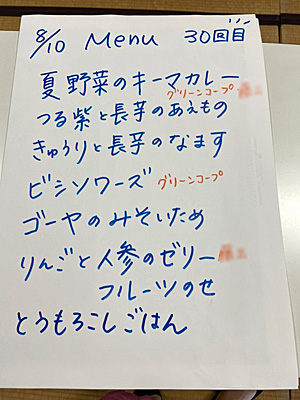 8/10 Menu 30回目
夏野菜のキーマカレー
グリーンコープ
つる紫と長芋のあえもの
きゅうりと長芋のなます
ビシソワーズ グリーンコープ
ゴーヤのみそいため
りんごと人参のゼリー
フルーツのせ
とうもろこしごはん